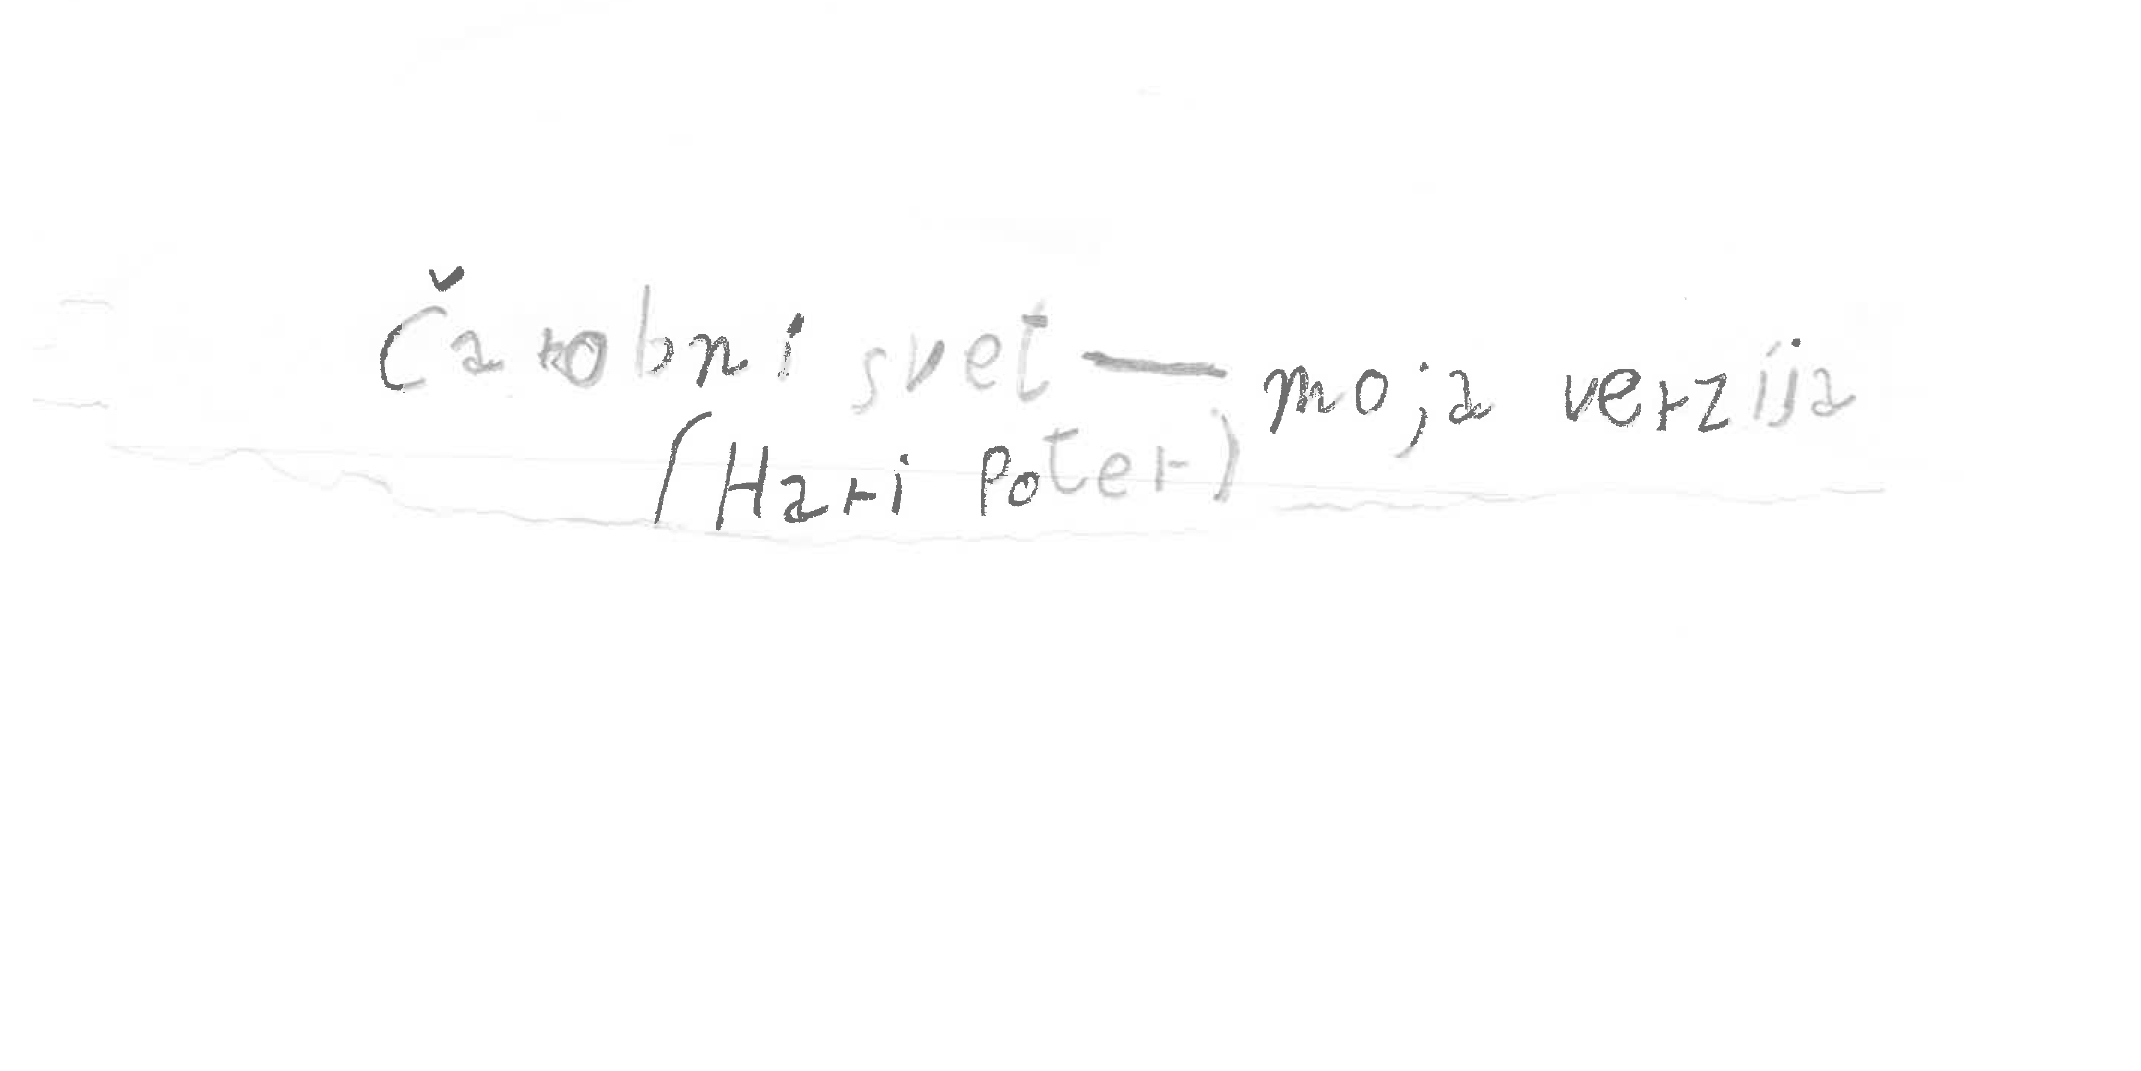 Čarobni svet — moja verzija
(Hari Poter)